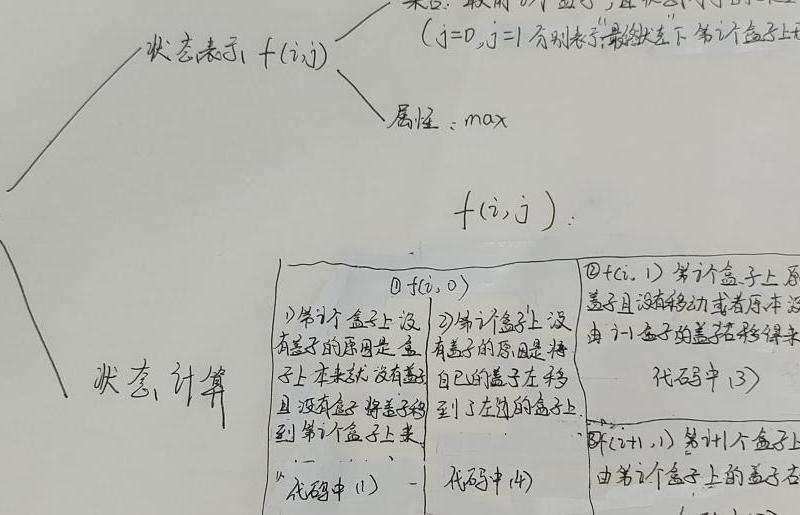 状态表示 f(i,j)
(j=0,j=1分别表示"最终状态"下第i个盒子上
属性:max
f(i,j):
状态计算
①f(i,0)
1)第i个盒子上没
有盖子的原因是盒
子上本来就没有盖子
且没有盒子将盖子移
到第i个盒子上来
代码中(1)
2)第i个盒子上没
有盖子的原因是将
自己的盖子左移
到了左边的盒子上
代码中(4)
②f(i,1)第i个盒子上原
盖子且没有移动或者原本没
由i-1盒子的盖子右移得来
代码中(3)
③f(i+1,1)第i+1个盒子上
由第i个盒子上的盖子右